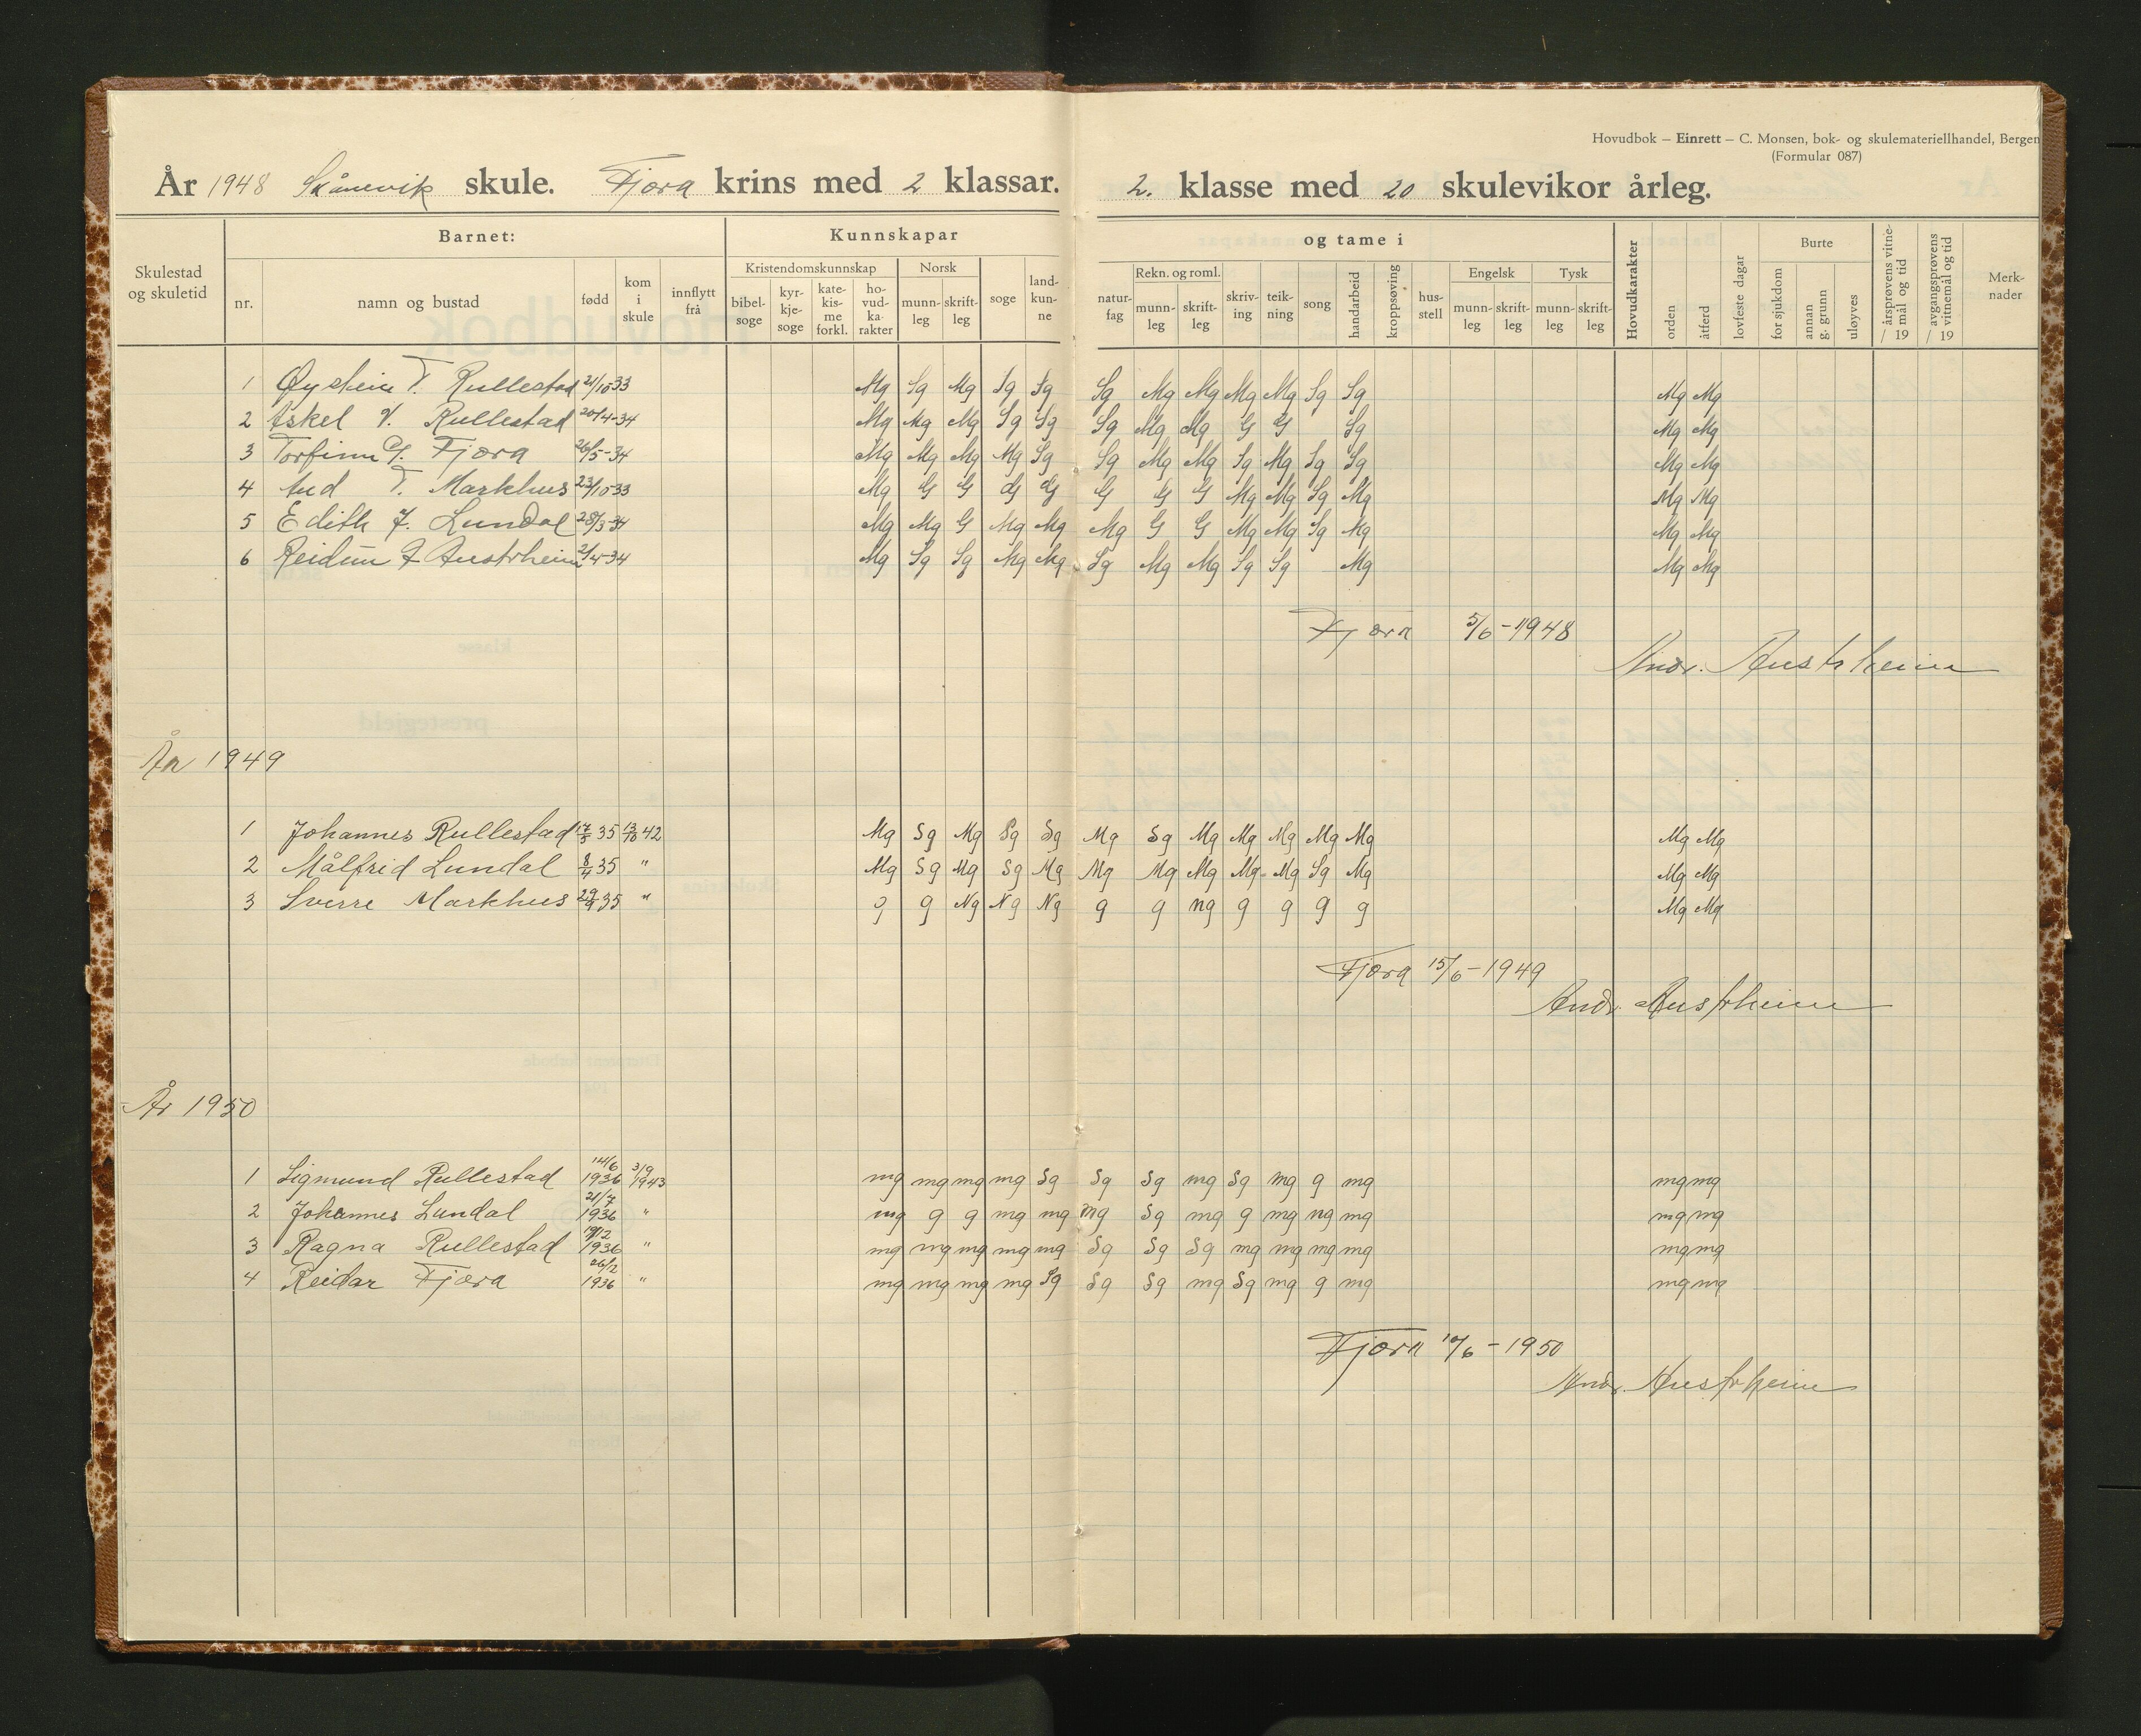 Hovudbok – Einrett – C. Monsen, bok- og skulemateriellhandel, Bergen
(Formular 087)
År 1948 Skånevik skule. Fjæra krins med 2 klassar. 2. klasse med 20 skulevikor årleg.
Skulestad og skuletid
Barnet:
nr. namn og bustad fødd kom i skule innflytt frå
Kunnskapar og tame i
Kristendomskunnskap bibel-soge kyr-kje-soge kate-kis-me forkl. ho-vud-ka-rakter
Norsk munn-leg skrift-leg soge land-kun-ne
natur-fag Rekn. og roml. munn-leg skrift-leg skriv-ing teik-ning song handarbeid kroppsøving hus-stell
Engelsk munn-leg skrift-leg Tysk munn-leg skrift-leg
Hovudkarakter orden åtferd lovfeste dagar
Burte for sjukdom annan g. grunn uløyves
årsprøvens vitne-mål og tid / 19 avgangsprøvens vitnemål og tid / 19
Merk-nader
1 Øystein T. Rullestad 21/10-33 Mg Sg Mg Sg Sg Sg Mg Mg Mg Mg Sg Sg Mg Mg
2 Askel V. Rullestad 20/4-34 Mg Mg Mg Sg Sg Sg Mg Mg G G Sg Mg Mg
3 Torfinn G. Fjæra 26/5-34 Mg Mg Mg Mg Sg Sg Mg Mg Sg Mg Sg Sg Mg Mg
4 Aud T. Markhus 23/10-33 Mg G G G G G G G Mg Mg Sg Mg Mg Mg
5 Edith J. Lundal 28/3-34 Mg Mg G Mg Mg Mg G G Mg Mg Sg Mg Mg Mg
6 Reidun A. Austrheim 2/4-34 Mg Sg Sg Mg Mg Sg Mg Mg Sg Sg Mg Mg Mg
Fjæra 5/6-1948
Andr. Austrheim
År 1949
1 Johannes Rullestad 17/3 35 13/10 42 Mg Sg Mg Sg Sg Mg Sg Mg Mg Mg Mg Mg Mg Mg
2 Målfrid Lundal 8/4 35 " Mg Sg Mg Sg Mg Mg Mg Mg Mg Mg Sg Mg Mg Mg
3 Sverre Markhus 29/9 35 " g g Ng Ng Ng g g ng g g g g Mg Mg
Fjæra 15/6-1949
Andr. Austrheim
År 1950
1 Sigmund Rullestad 14/6 1936 3/9 1943 mg mg mg mg Sg Sg Sg mg Sg mg g mg mg mg
2 Johannes Lundal 21/7 1936 " mg g g mg mg mg Sg mg g mg ng mg mg mg
3 Ragna Rullestad 19/12 1936 " mg mg mg mg mg Sg Sg Sg mg mg mg mg mg mg
4 Reidar Fjæra 26/12 1936 " mg mg mg mg Sg Sg Sg mg Sg mg g mg mg mg
Fjæra /6-1950
Andr. Austrheim